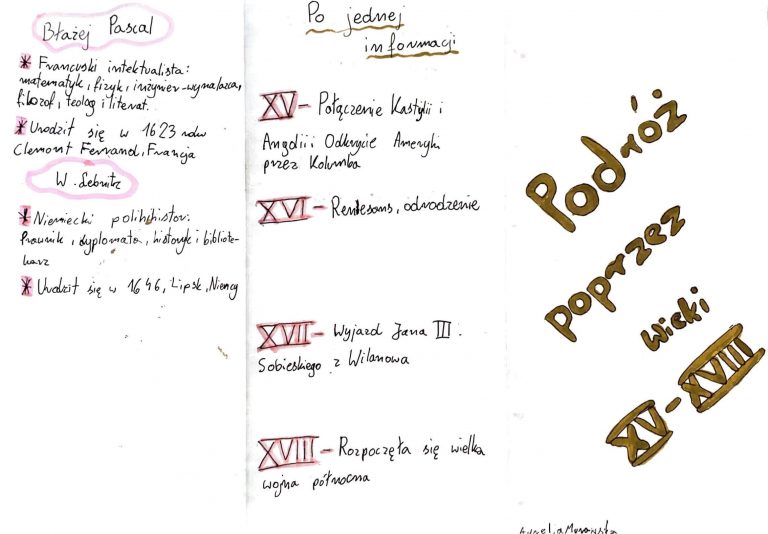 Błażej Pascal
* Francuski intektualista:
matematyk, fizyk, inżynier-wynalazca,
filozof, teolog i literat.
* Urodził się w 1623 roku
Clemont Ferrand, Francja
W. Lebnitz
* Niemiecki polihistor:
Prawnik, dyplomata, historyk i bibliote-
karz
* Urodził się w 1646, Lipsk, Niemcy
Po jednej
informacji
XV - Połączenie Kastylii i
Angolii i Odkrycie Ameryki
przez Kolumba
XVI - Rentesans, odrodzenie
XVII - Wyjazd Jana III.
Sobieskiego z Wilanowa
XVIII - Rozpoczęła się wielka
wojna północna
Podróż
poprzez
wieki
XV-XVIII